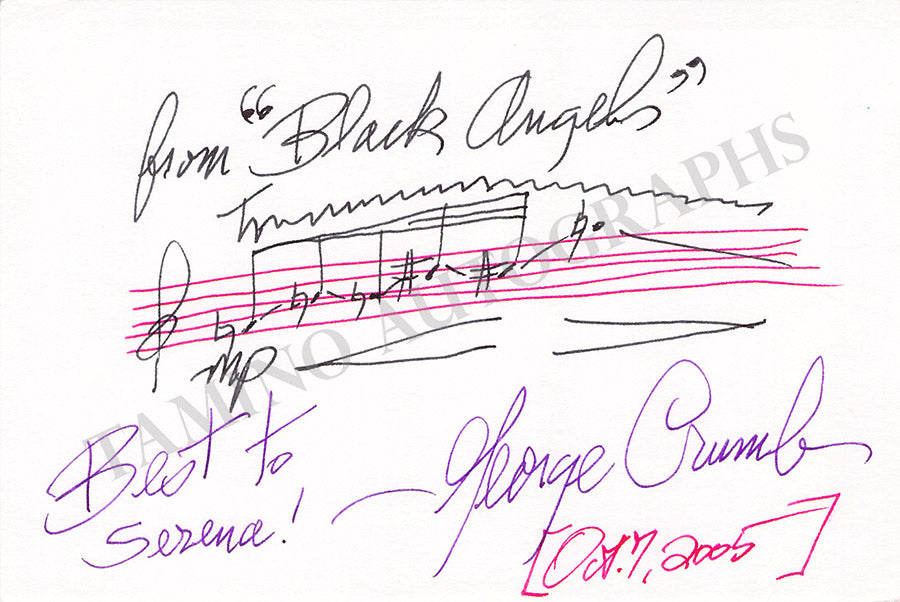 from “Black Angels”
mp
TAMINO AUTOGRAPHS
Best to
Serena!
— George Crumb
[Oct. 7, 2005]